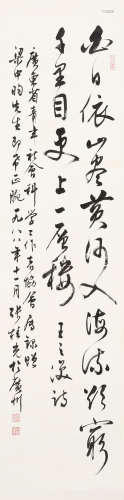 白日依山尽黄河入海流欲穷
千里目更上一层楼 王之涣诗
广东省书法社会科学工作者协会属课赠
梁中昀先生即希正腕 一九八八年十一月 张桂光于广州